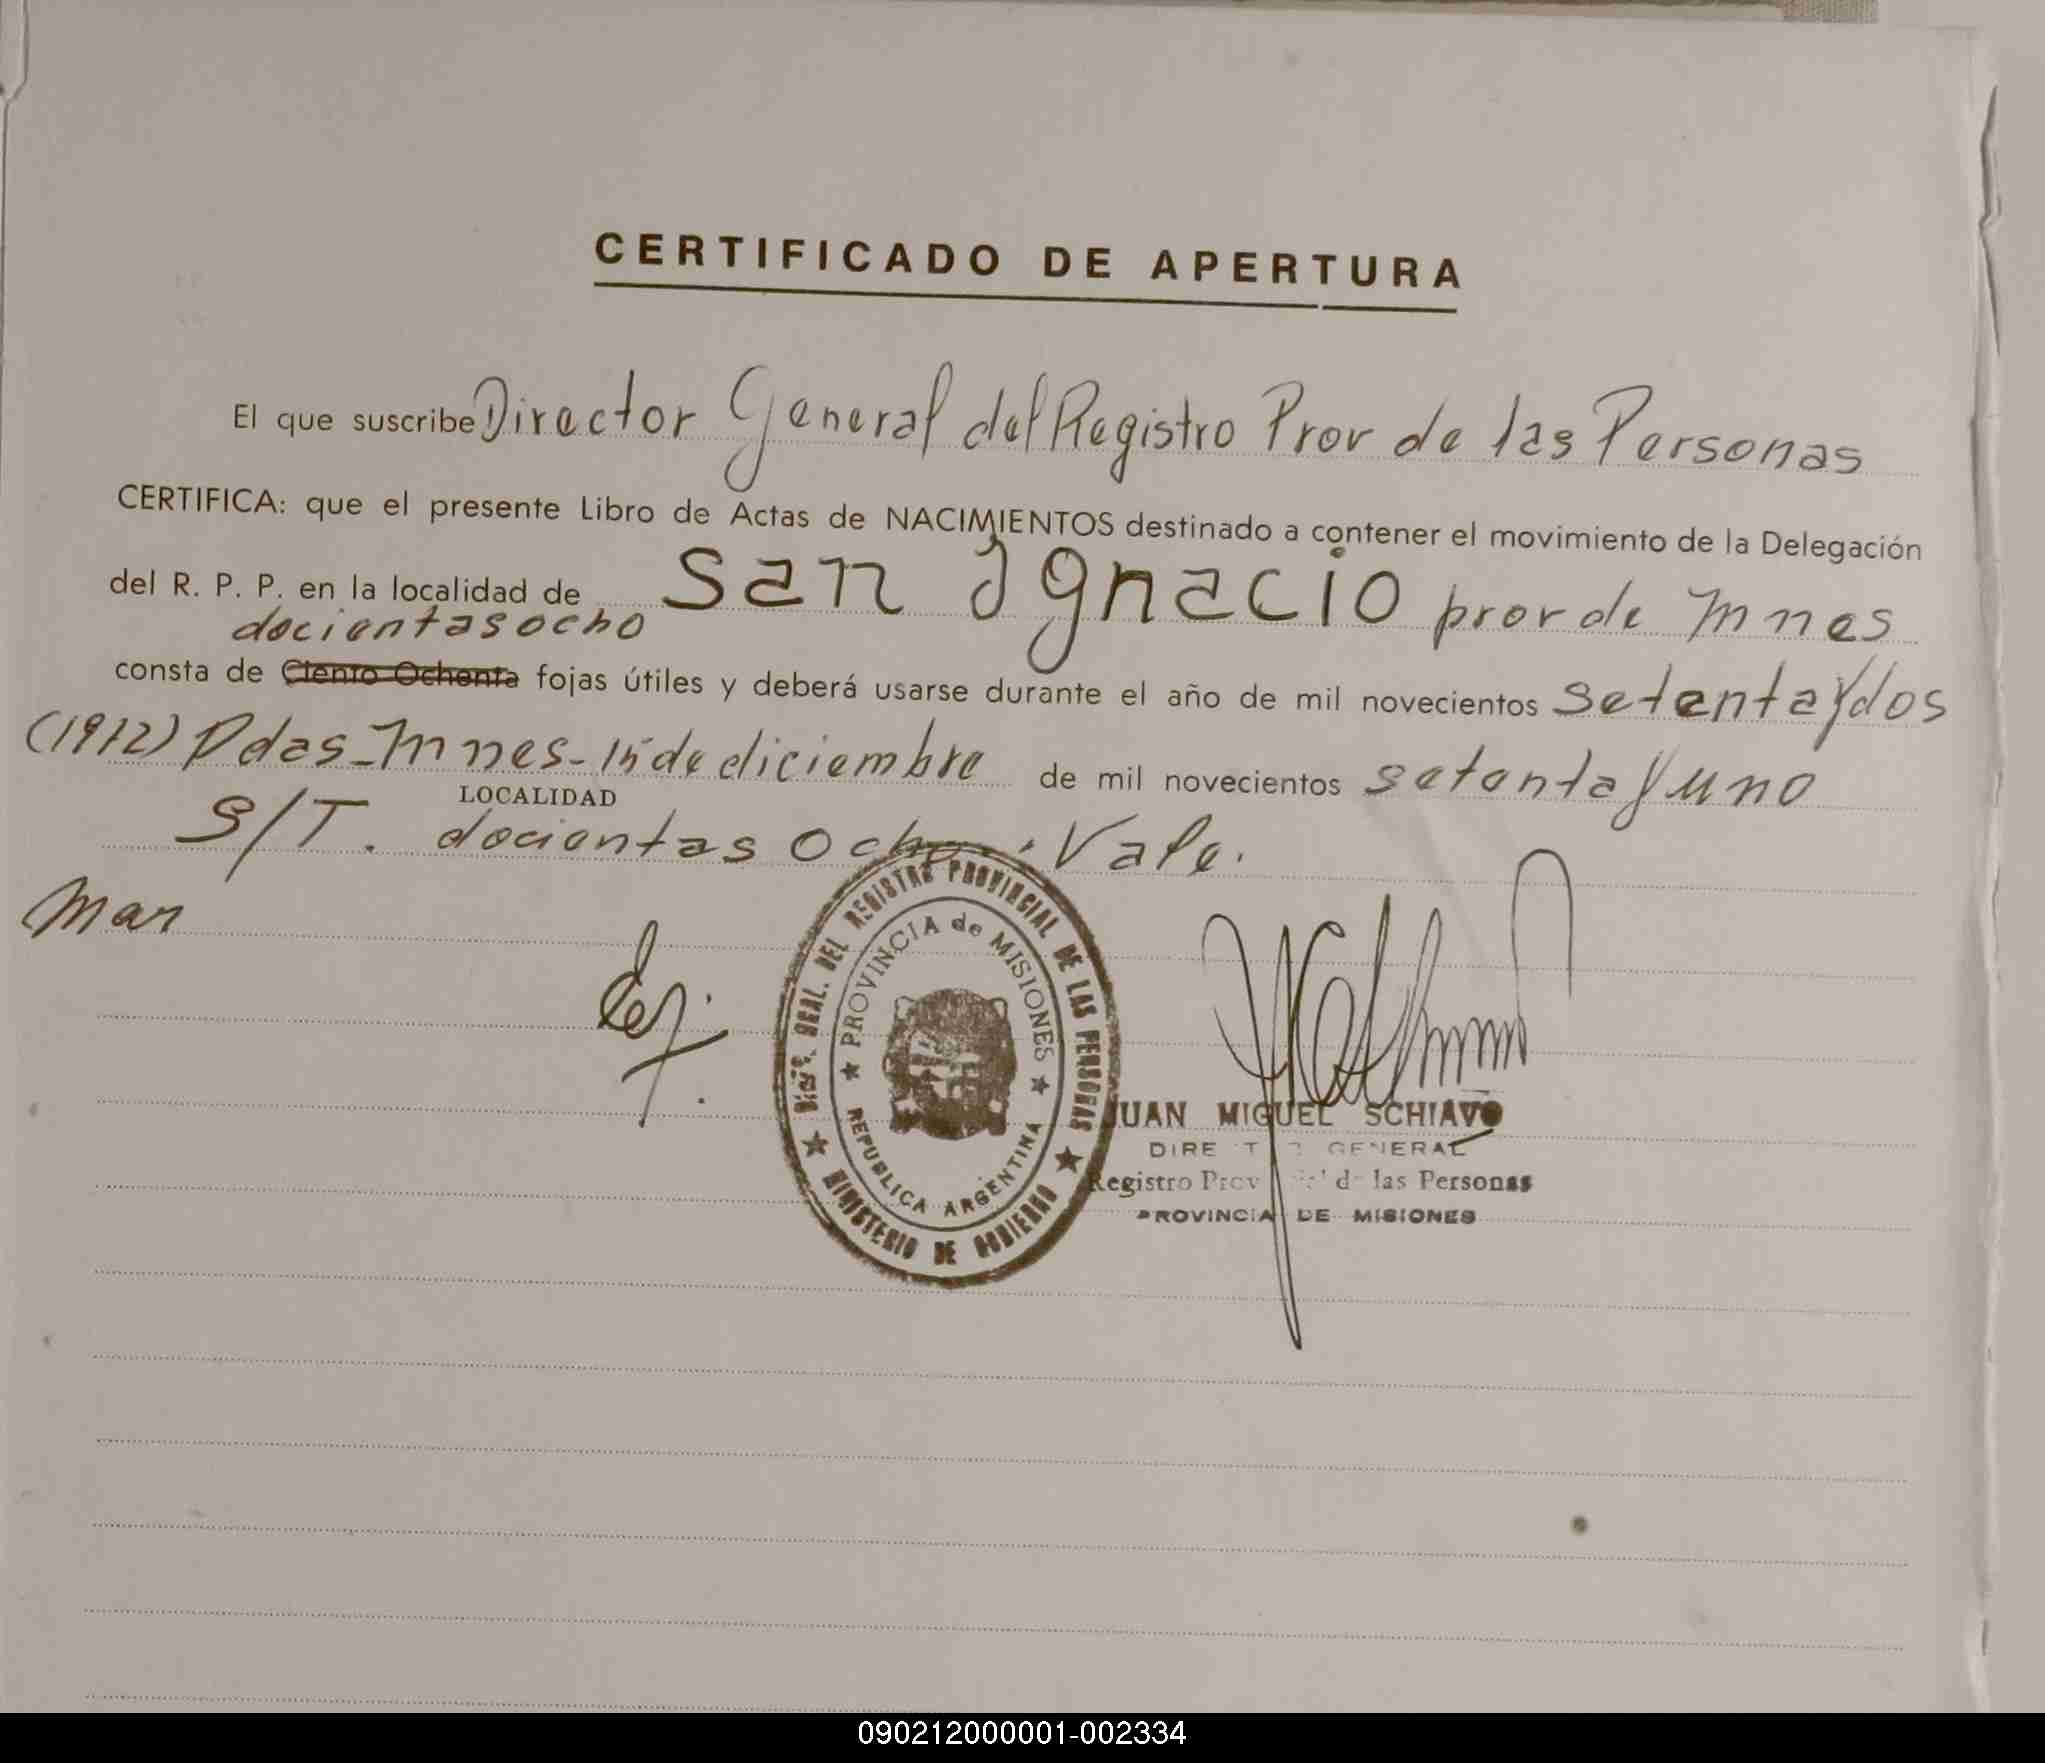 CERTIFICADO DE APERTURA
El que suscribe Director General del Registro Prov de las Personas
CERTIFICA: que el presente Libro de Actas de NACIMIENTOS destinado a contener el movimiento de la Delegación
del R. P. P. en la localidad de San Ignacio prov de Mnes
docientas ocho
consta de Ciento Ochenta fojas útiles y deberá usarse durante el año de mil novecientos setenta y dos
(1972) Pdas-Mnes-15 de diciembre de mil novecientos setenta y uno
LOCALIDAD
S/T. docientas Ocho. Vale.
Man
DIREC. GRAL. DEL REGISTRO PROVINCIAL DE LAS PERSONAS
PROVINCIA de MISIONES
REPUBLICA ARGENTINA
MINISTERIO DE GOBIERNO
JUAN MIGUEL SCHIAVO
DIRE T GENERAL
Registro Prov d las Personas
PROVINCIA DE MISIONES
090212000001-002334